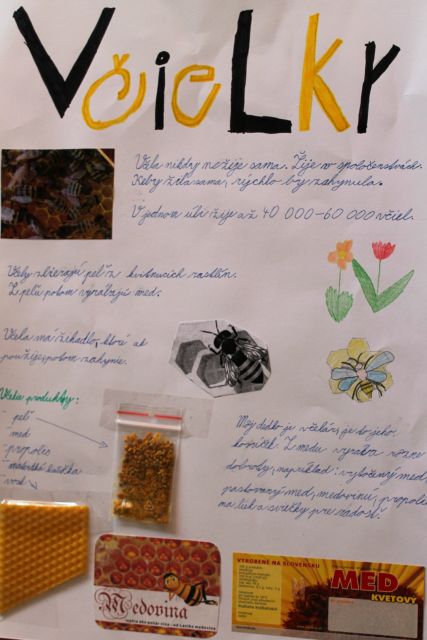 Včielky
Včela nikdy nežije sama. Žije v spoločenstvách.
Keby žila sama, rýchlo by zahynula.
V jednom úli žije až 40 000-60 000 včiel.
Včely zbierajú peľ z kvitnúcich rastlín.
Z peľu potom vyrábajú med.
Včela má žihadlo, ktoré ak
použije, potom zahynie.
Včelie produkty:
- peľ
- med
- propolis
- materská kašička
- vosk
Môj dedko je včelár, je to jeho
koníček. Z medu vyrába rôzne
dobroty, napríklad: vytočený med,
pastovaný med, medovinu, propolis
na liek a sviečky pre radosť.
Medovina
VYROBENÉ NA SLOVENSKU
MED
KVETOVÝ